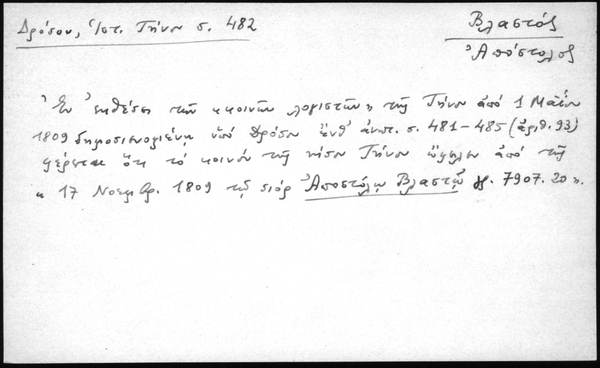 Δρόσου, Ἱστ. Τήνου σ. 482
Βλαστὸς
Ἀπόστολος
Ἐν ἐκθέσει τῶν κοινῶν λογιστῶν τῆς Τήνου ἀπὸ 1 Μαΐου
1809 δημοσιευομένη ὑπὸ Δρόσου ἔνθ' ἀνωτ. σ. 481-485 (ἀριθ. 93)
φέρεται ὅτι τὸ κοινὸν τῆς νήσου Τήνου ὤφειλεν ἀπὸ τῆς
« 17 Νοεμβρ. 1809 τῷ σιὸρ Ἀποστόλῳ Βλαστῷ γρ. 7907.20 ».